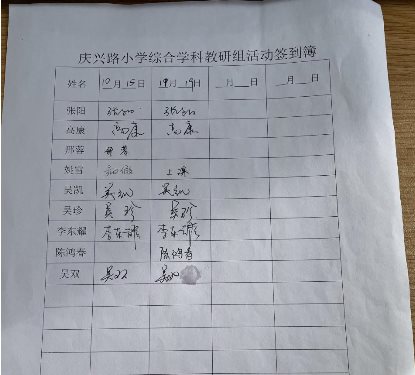 庆兴路小学综合学科教研组活动签到簿
姓名 10月15日 19日 月 日 月 日
张阳
高康 高康 高康
邢蓉
姚雪 上课
吴凯 吴凯 吴凯
吴珍 吴珍 吴珍
李东耀 李东耀 李东耀
陈鸿春 陈鸿春
吴双 吴双 吴双